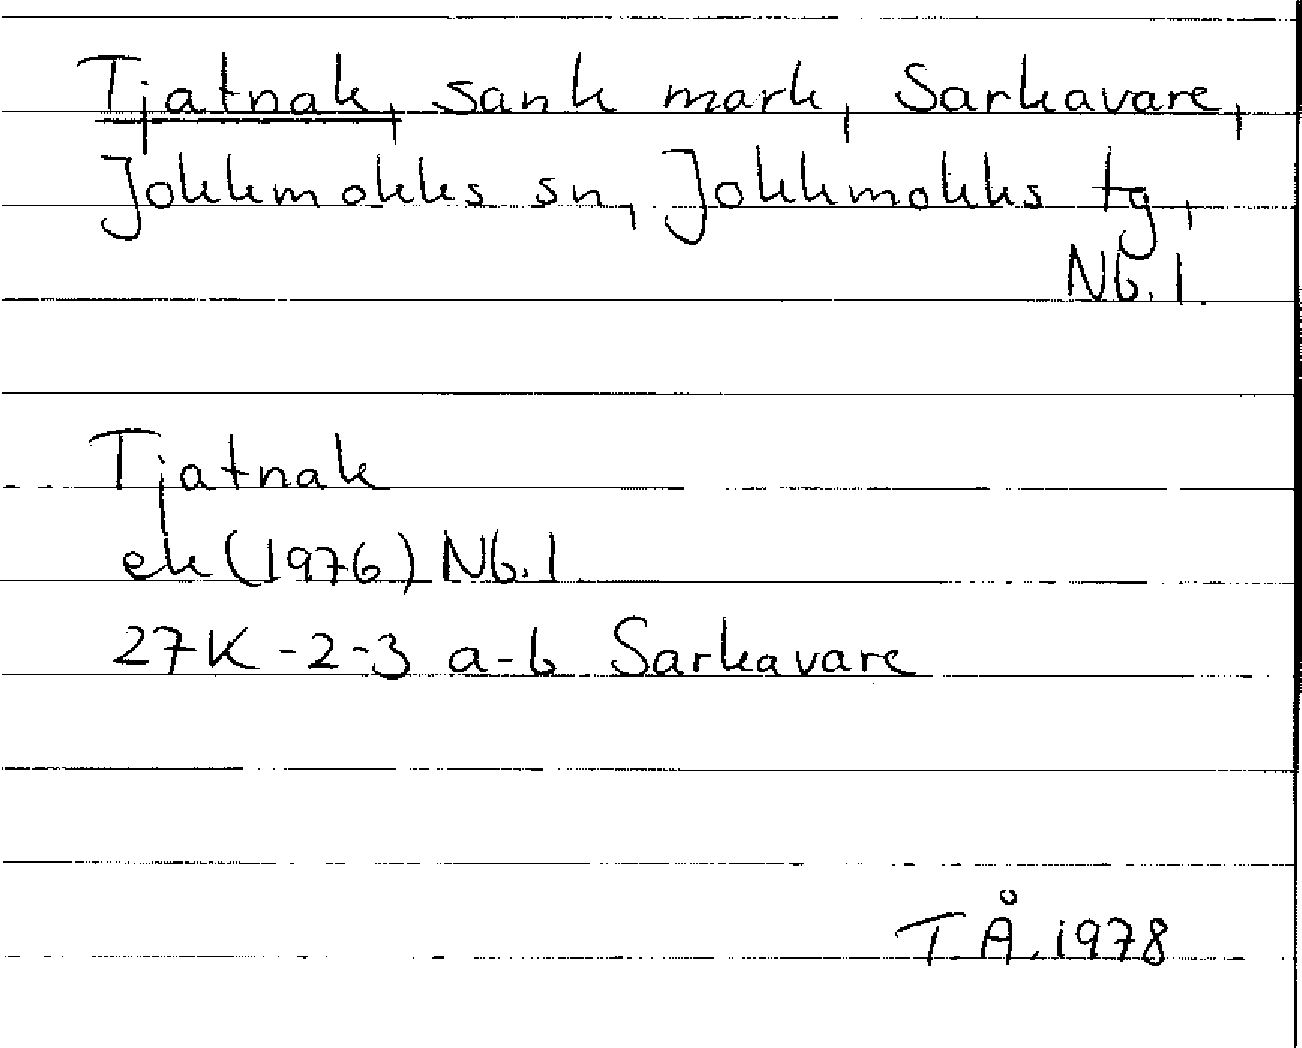 Tjatnak, sank mark, Sarkavare,
Jokkmokks sn, Jokkmokks tg,
Nb. l.
Tjatnak
ek (1976) Nb. l
27K-2-3 a-b Sarkavare
T.Å. 1978